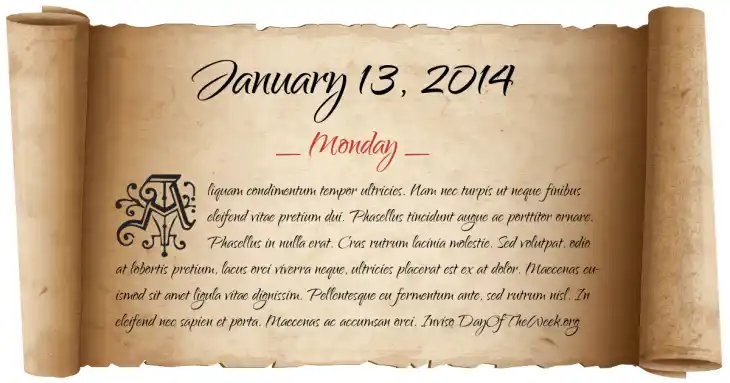 January 13, 2014
_ Monday _
Aliquam condimentum tempor ultricies. Nam nec turpis ut neque finibus
eleifend vitae pretium dui. Phasellus tincidunt augue ac porttitor ornare.
Phasellus in nulla erat. Cras rutrum lacinia molestie. Sed volutpat, odio
at lobortis pretium, lacus orci viverra neque, ultricies placerat est ex at dolor. Maecenas eu-
ismod sit amet ligula vitae dignissim. Pellentesque eu fermentum ante, sed rutrum nisl. In
eleifend nec sapien et porta. Maecenas ac accumsan orci. Inviso DayOfTheWeek.org